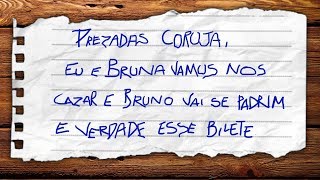 PREZADAS CORUJA,
EU E BRUNA VAMUS NOS
CAZAR E BRUNO VAI SE PADRIM
E VERDADE ESSE BILETE